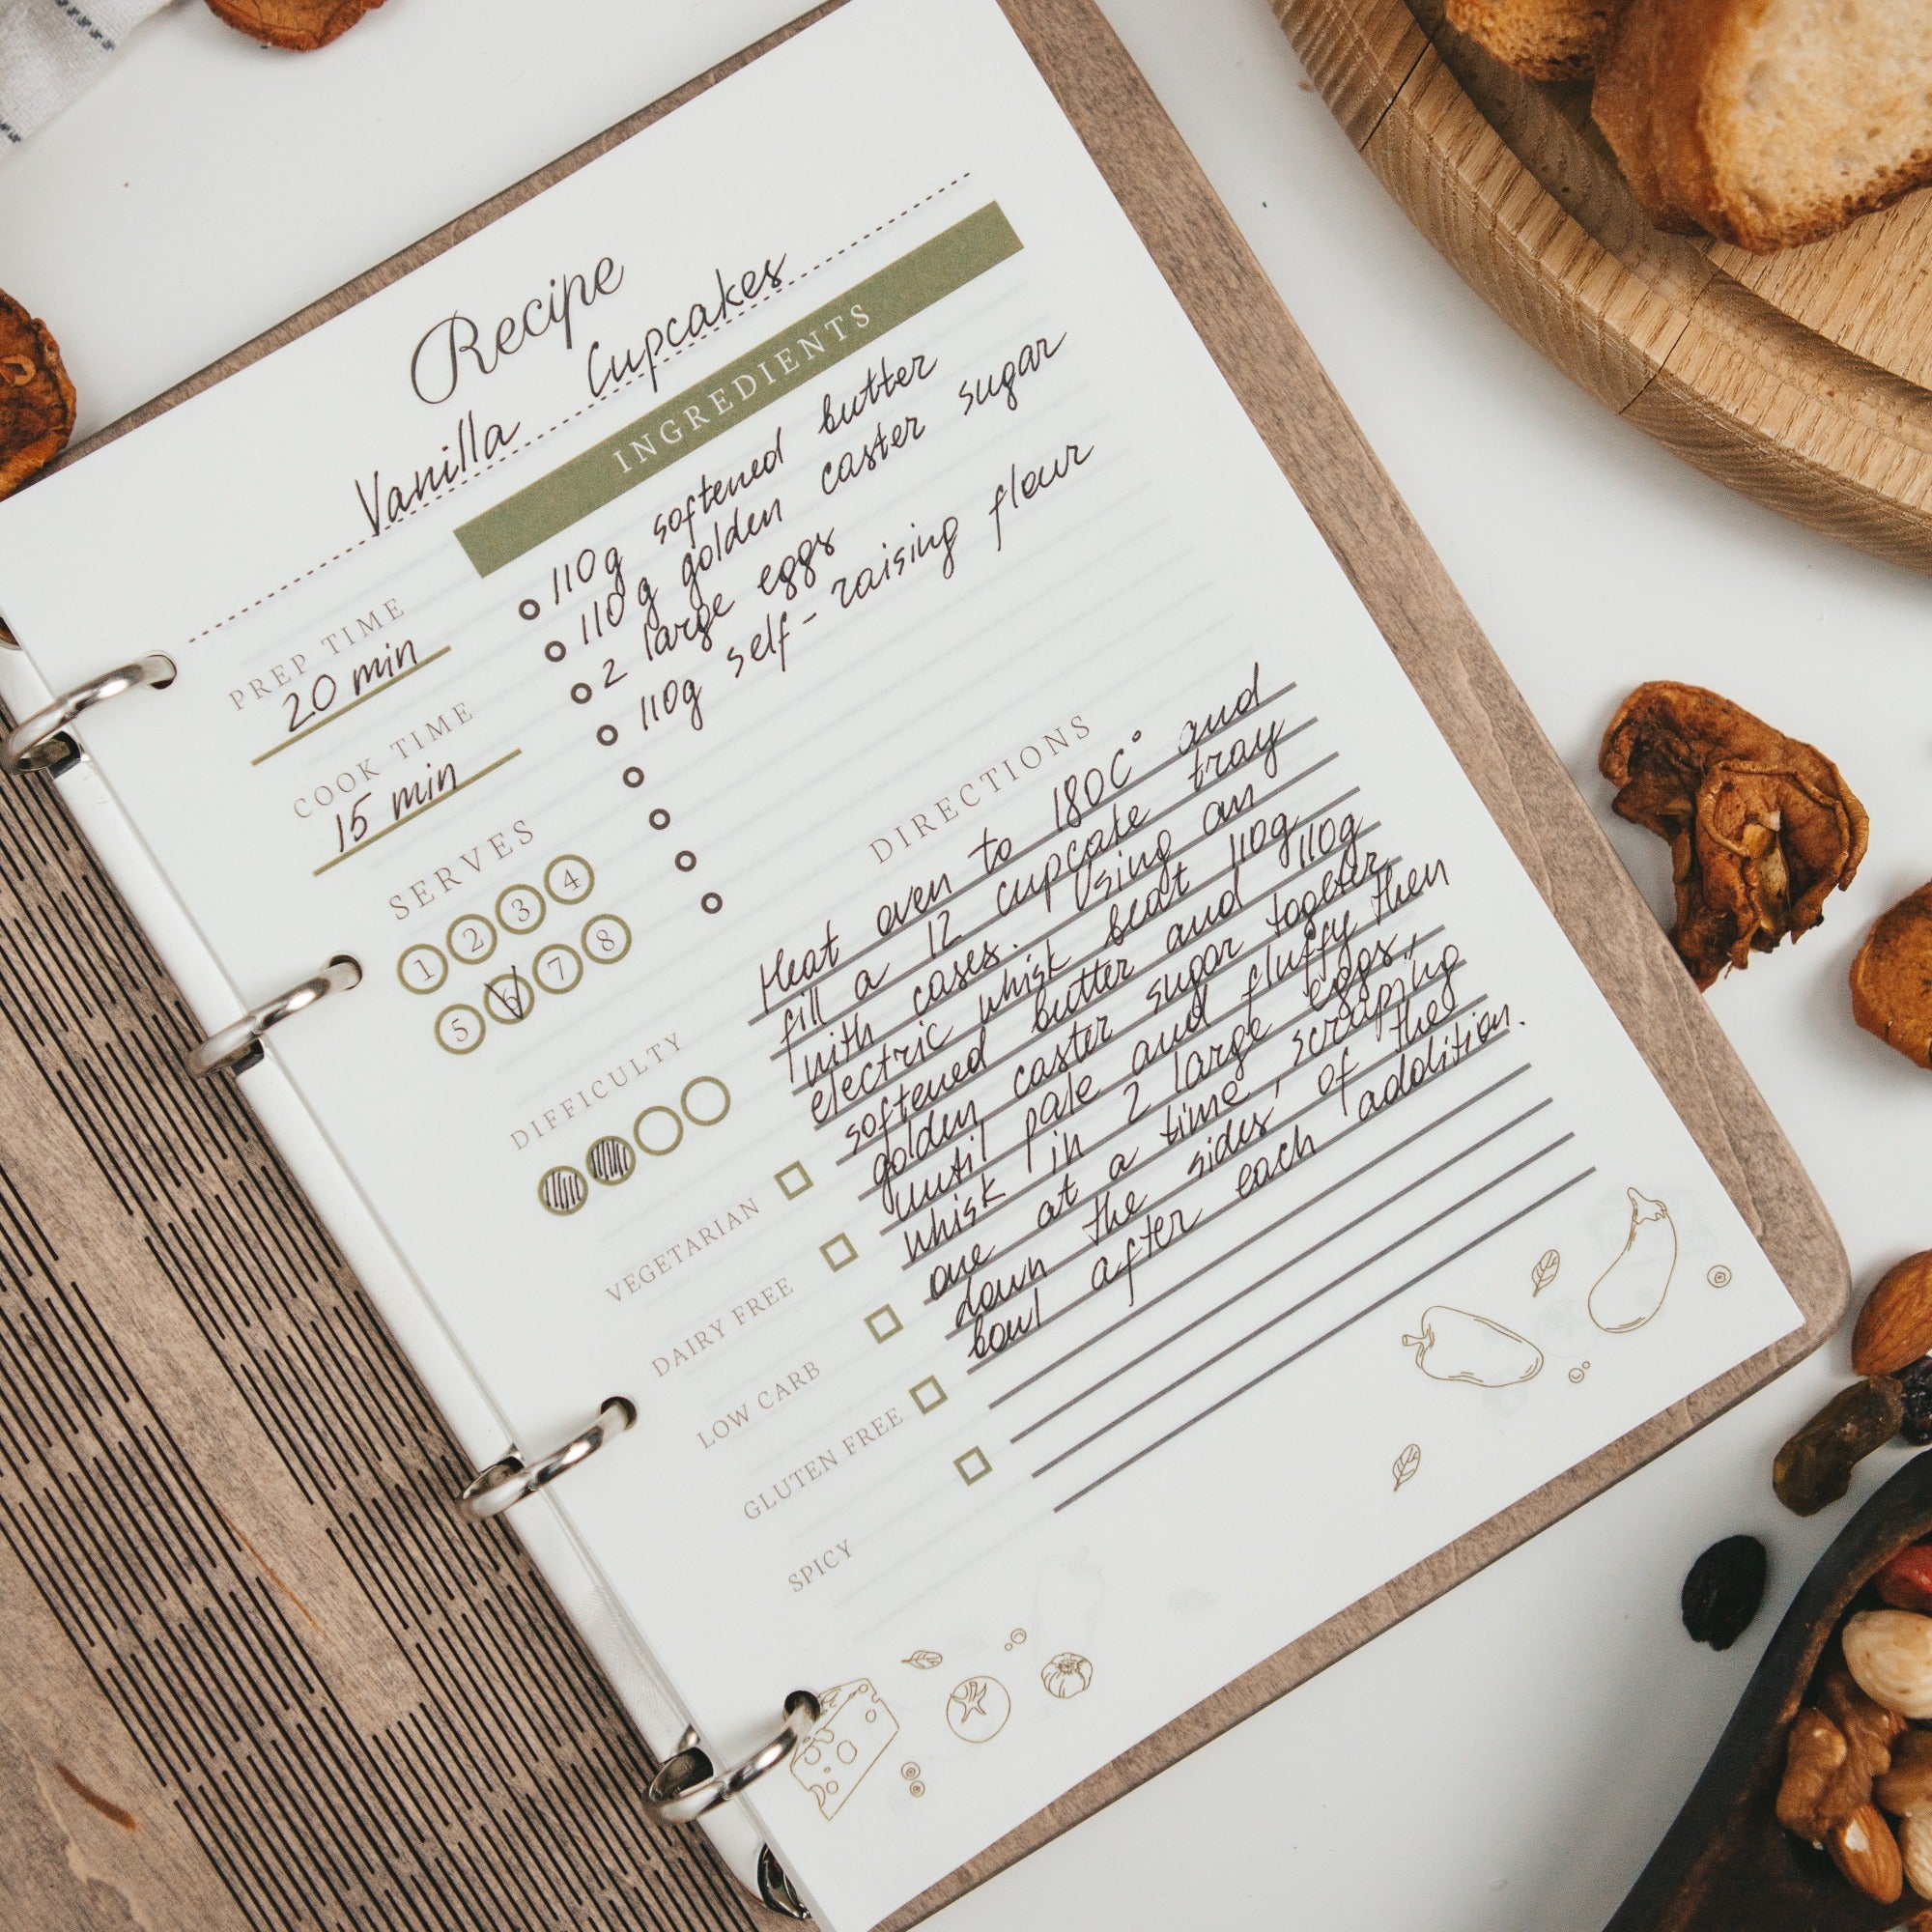 Recipe
Vanilla Cupcakes
INGREDIENTS
110g softened butter
110g golden caster sugar
2 large eggs
110g self-raising flour
PREP TIME
20 min
COOK TIME
15 min
SERVES
1 2 3 4
5 6 7 8
DIFFICULTY
VEGETARIAN
DAIRY FREE
LOW CARB
GLUTEN FREE
SPICY
DIRECTIONS
Heat oven to 180C° and
fill a 12 cupcake tray
with cases. Using an
electric whisk beat 110g
softened butter and 110g
golden caster sugar togeter
until pale and fluffy then
whisk in 2 large eggs,
one at a time, scraping
down the sides of the
bowl after each addition.